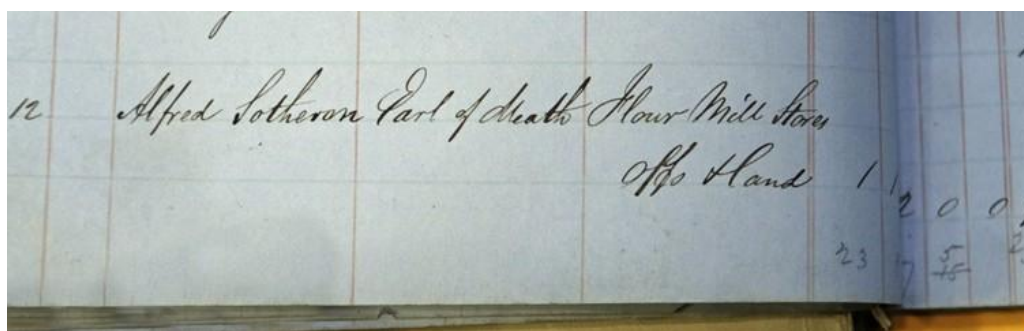 12 Alfred Sotheron Earl of Meath Flour Mill Stores
Offs & Land 1 1
2 0 0
23 7